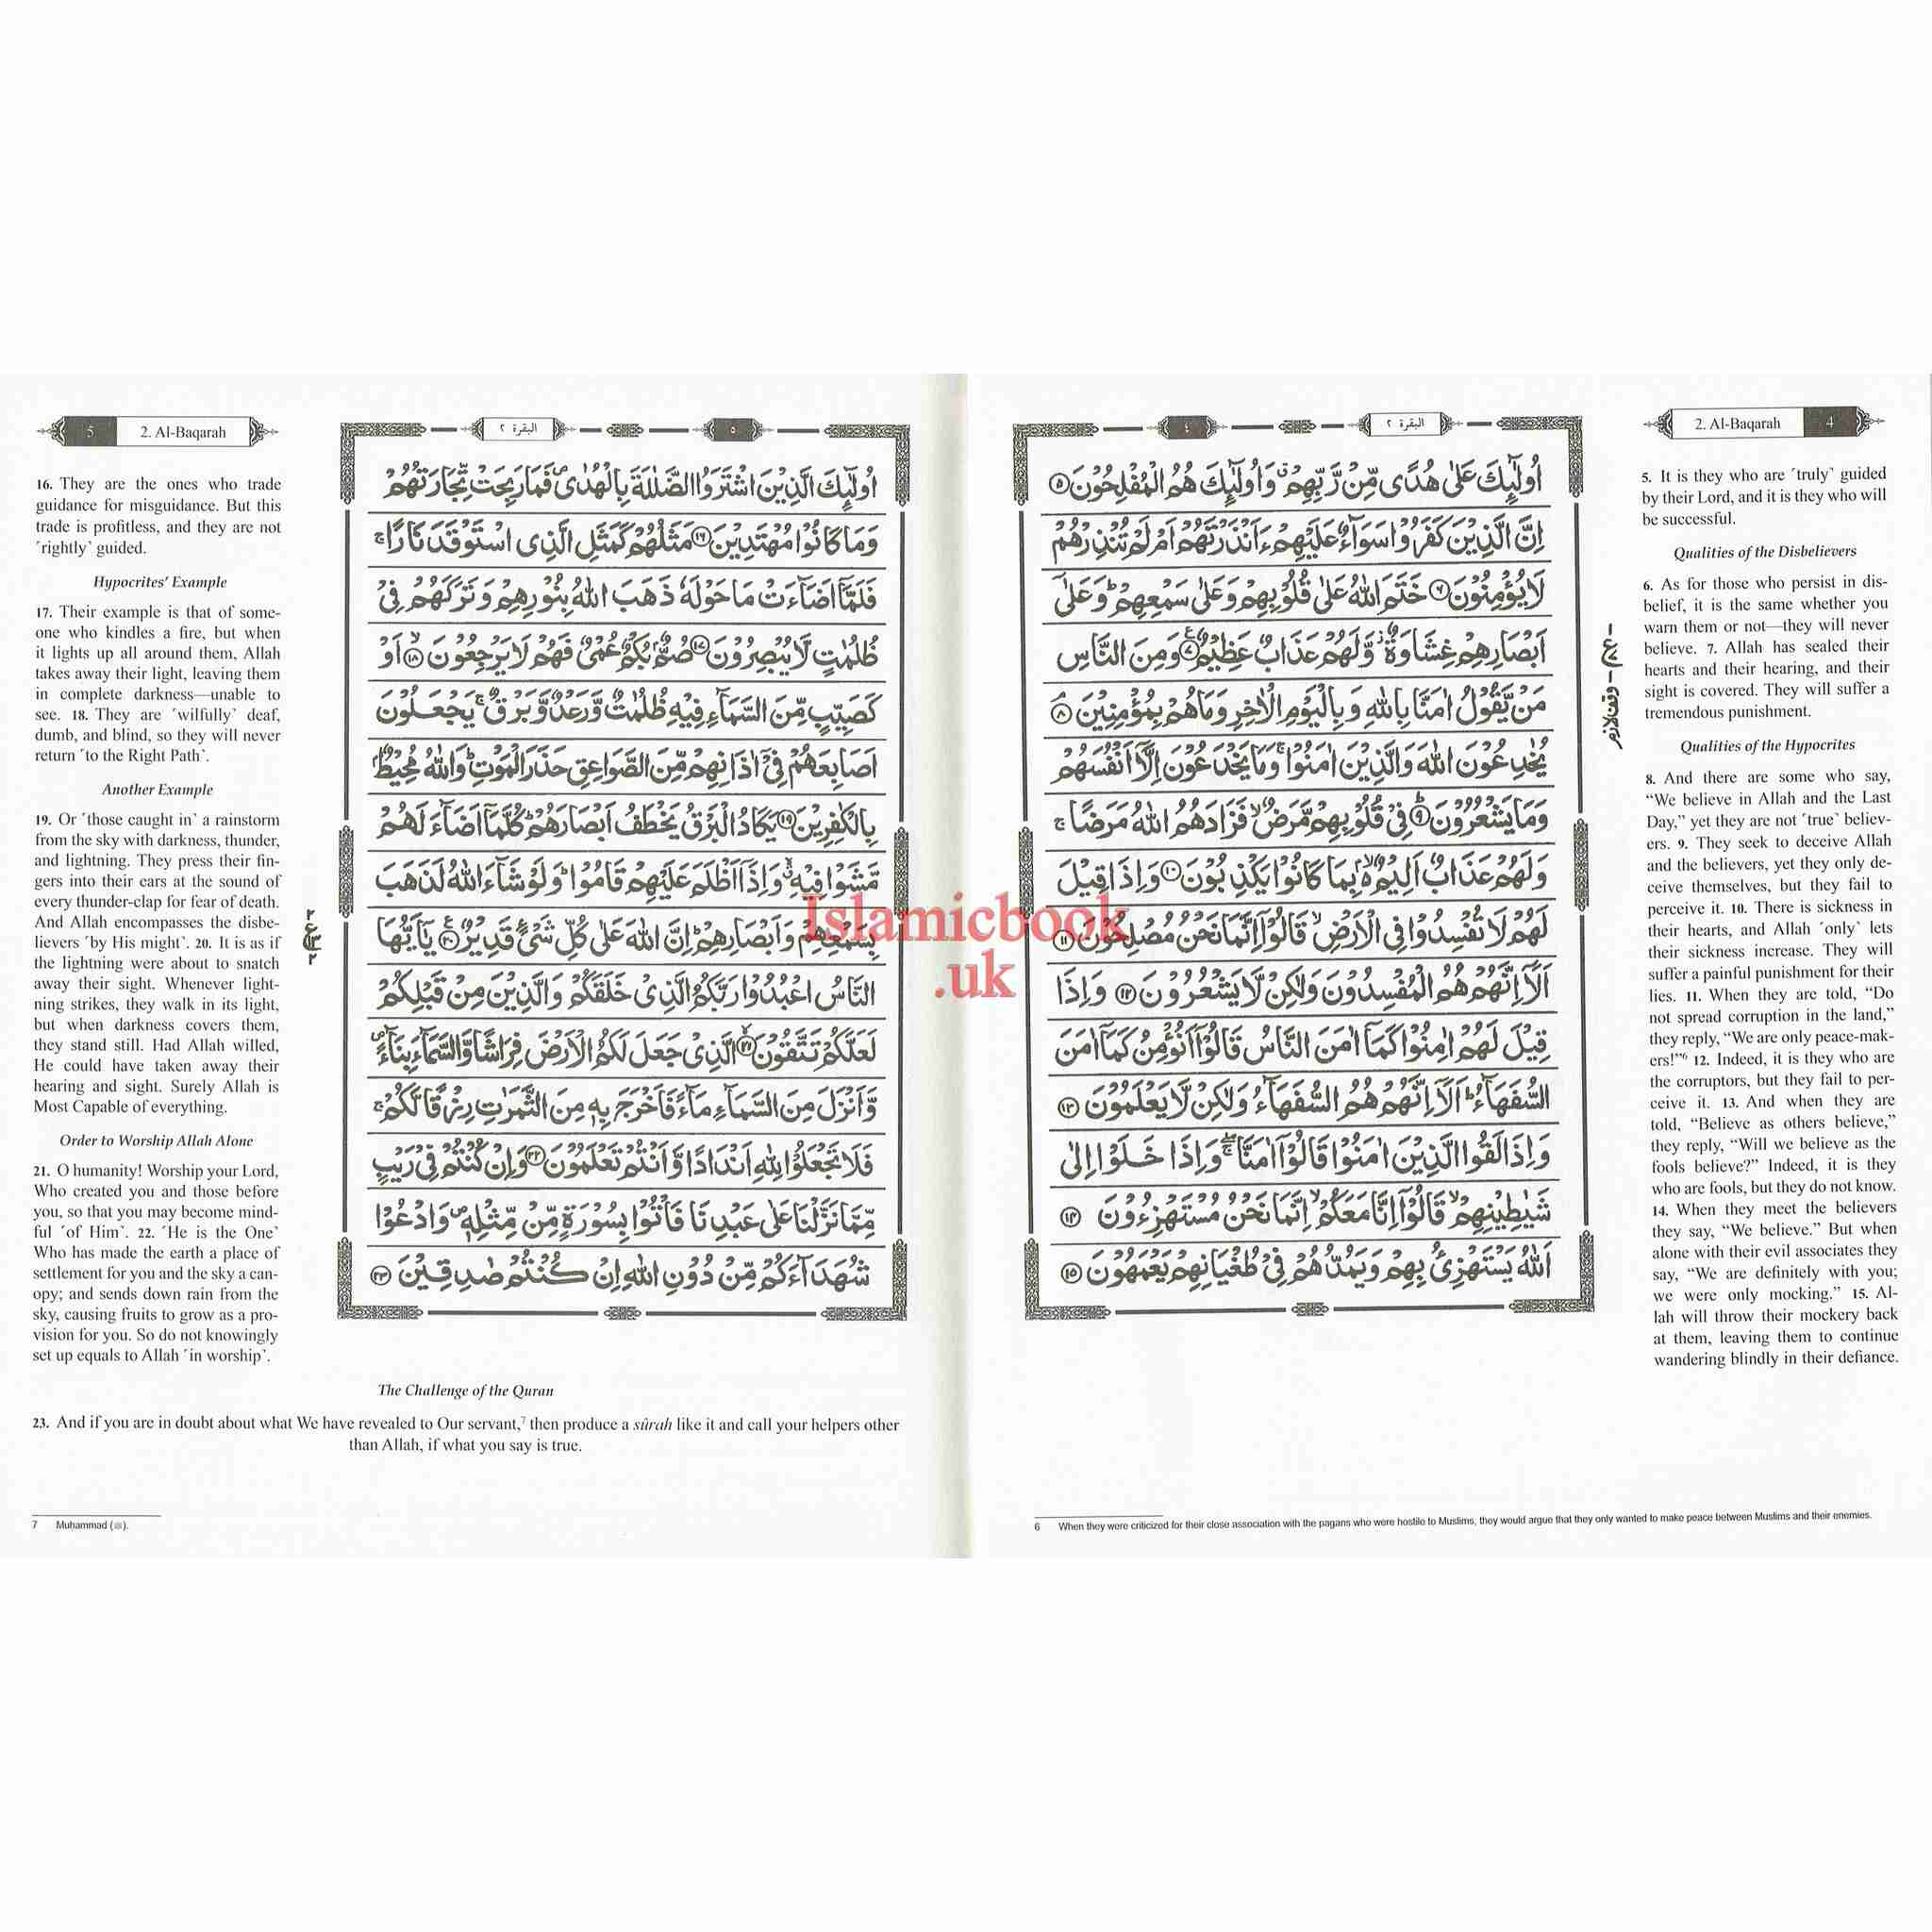 2. Al-Baqarah 4
البقرة ٢
٤
اُولٰٓئِكَ عَلٰى هُدًى مِّنْ رَّبِّهِمْ ۗ وَاُولٰٓئِكَ هُمُ الْمُفْلِحُوْنَ ۝٥
اِنَّ الَّذِيْنَ كَفَرُوْا سَوَآءٌ عَلَيْهِمْ ءَاَنْذَرْتَهُمْ اَمْ لَمْ تُنْذِرْهُمْ
لَا يُؤْمِنُوْنَ ۝٦ خَتَمَ اللّٰهُ عَلٰى قُلُوْبِهِمْ وَعَلٰى سَمْعِهِمْ ؕ وَعَلٰٓى
اَبْصَارِهِمْ غِشَاوَةٌ ؗ وَّلَهُمْ عَذَابٌ عَظِيْمٌ ۝٧ وَمِنَ النَّاسِ
مَنْ يَّقُوْلُ اٰمَنَّا بِاللّٰهِ وَبِالْيَوْمِ الْاٰخِرِ وَمَا هُمْ بِمُؤْمِنِيْنَ ۝٨
يُخٰدِعُوْنَ اللّٰهَ وَالَّذِيْنَ اٰمَنُوْا ۚ وَمَا يَخْدَعُوْنَ اِلَّآ اَنْفُسَهُمْ
وَمَا يَشْعُرُوْنَ ۝٩ فِيْ قُلُوْبِهِمْ مَّرَضٌ ۙ فَزَادَهُمُ اللّٰهُ مَرَضًا ۚ
وَلَهُمْ عَذَابٌ اَلِيْمٌ ۢ ۙ بِمَا كَانُوْا يَكْذِبُوْنَ ۝١٠ وَاِذَا قِيْلَ
لَهُمْ لَا تُفْسِدُوْا فِى الْاَرْضِ ۙ قَالُوْٓا اِنَّمَا نَحْنُ مُصْلِحُوْنَ ۝١١
اَلَآ اِنَّهُمْ هُمُ الْمُفْسِدُوْنَ وَلٰكِنْ لَّا يَشْعُرُوْنَ ۝١٢ وَاِذَا
قِيْلَ لَهُمْ اٰمِنُوْا كَمَآ اٰمَنَ النَّاسُ قَالُوْٓا اَنُؤْمِنُ كَمَآ اٰمَنَ
السُّفَهَآءُ ؕ اَلَآ اِنَّهُمْ هُمُ السُّفَهَآءُ وَلٰكِنْ لَّا يَعْلَمُوْنَ ۝١٣
وَاِذَا لَقُوا الَّذِيْنَ اٰمَنُوْا قَالُوْٓا اٰمَنَّا ۖۚ وَاِذَا خَلَوْا اِلٰى
شَيٰطِيْنِهِمْ ۙ قَالُوْٓا اِنَّا مَعَكُمْ ۙ اِنَّمَا نَحْنُ مُسْتَهْزِءُوْنَ ۝١٤
اَللّٰهُ يَسْتَهْزِئُ بِهِمْ وَيَمُدُّهُمْ فِيْ طُغْيَانِهِمْ يَعْمَهُوْنَ ۝١٥
وقف لازم
5. It is they who are ˹truly˺ guided
by their Lord, and it is they who will
be successful.
Qualities of the Disbelievers
6. As for those who persist in dis-
belief, it is the same whether you
warn them or not—they will never
believe. 7. Allah has sealed their
hearts and their hearing, and their
sight is covered. They will suffer a
tremendous punishment.
Qualities of the Hypocrites
8. And there are some who say,
“We believe in Allah and the Last
Day,” yet they are not ˹true˺ believ-
ers. 9. They seek to deceive Allah
and the believers, yet they only de-
ceive themselves, but they fail to
perceive it. 10. There is sickness in
their hearts, and Allah ˹only˺ lets
their sickness increase. They will
suffer a painful punishment for their
lies. 11. When they are told, “Do
not spread corruption in the land,”
they reply, “We are only peace-mak-
ers!”6 12. Indeed, it is they who are
the corruptors, but they fail to per-
ceive it. 13. And when they are
told, “Believe as others believe,”
they reply, “Will we believe as the
fools believe?” Indeed, it is they
who are fools, but they do not know.
14. When they meet the believers
they say, “We believe.” But when
alone with their evil associates they
say, “We are definitely with you;
we were only mocking.” 15. Al-
lah will throw their mockery back
at them, leaving them to continue
wandering blindly in their defiance.
6 When they were criticized for their close association with the pagans who were hostile to Muslims, they would argue that they only wanted to make peace between Muslims and their enemies.
5 2. Al-Baqarah
٥
البقرة ٢
اُولٰٓئِكَ الَّذِيْنَ اشْتَرَوُا الضَّلٰلَةَ بِالْهُدٰى ۪ فَمَا رَبِحَتْ تِّجَارَتُهُمْ
وَمَا كَانُوْا مُهْتَدِيْنَ ۝١٦ مَثَلُهُمْ كَمَثَلِ الَّذِى اسْتَوْقَدَ نَارًا ۚ
فَلَمَّآ اَضَآءَتْ مَا حَوْلَهٗ ذَهَبَ اللّٰهُ بِنُوْرِهِمْ وَتَرَكَهُمْ فِيْ
ظُلُمٰتٍ لَّا يُبْصِرُوْنَ ۝١٧ صُمٌّۢ بُكْمٌ عُمْيٌ فَهُمْ لَا يَرْجِعُوْنَ ۙ ۝١٨ اَوْ
كَصَيِّبٍ مِّنَ السَّمَآءِ فِيْهِ ظُلُمٰتٌ وَّرَعْدٌ وَّبَرْقٌ ۚ يَجْعَلُوْنَ
اَصَابِعَهُمْ فِيْٓ اٰذَانِهِمْ مِّنَ الصَّوَاعِقِ حَذَرَ الْمَوْتِ ؕ وَاللّٰهُ مُحِيْطٌۢ
بِالْكٰفِرِيْنَ ۝١٩ يَكَادُ الْبَرْقُ يَخْطَفُ اَبْصَارَهُمْ ؕ كُلَّمَآ اَضَآءَ لَهُمْ
مَّشَوْا فِيْهِ ۙۗ وَاِذَآ اَظْلَمَ عَلَيْهِمْ قَامُوْا ؕ وَلَوْ شَآءَ اللّٰهُ لَذَهَبَ
بِسَمْعِهِمْ وَاَبْصَارِهِمْ ؕ اِنَّ اللّٰهَ عَلٰى كُلِّ شَيْءٍ قَدِيْرٌ ۝٢٠ يٰٓاَيُّهَا
النَّاسُ اعْبُدُوْا رَبَّكُمُ الَّذِيْ خَلَقَكُمْ وَالَّذِيْنَ مِنْ قَبْلِكُمْ
لَعَلَّكُمْ تَتَّقُوْنَ ۙ ۝٢١ الَّذِيْ جَعَلَ لَكُمُ الْاَرْضَ فِرَاشًا وَّالسَّمَآءَ بِنَآءً ۪
وَّاَنْزَلَ مِنَ السَّمَآءِ مَآءً فَاَخْرَجَ بِهٖ مِنَ الثَّمَرٰتِ رِزْقًا لَّكُمْ ۚ
فَلَا تَجْعَلُوْا لِلّٰهِ اَنْدَادًا وَّاَنْتُمْ تَعْلَمُوْنَ ۝٢٢ وَاِنْ كُنْتُمْ فِيْ رَيْبٍ
مِّمَّا نَزَّلْنَا عَلٰى عَبْدِنَا فَاْتُوْا بِسُوْرَةٍ مِّنْ مِّثْلِهٖ ۪ وَادْعُوْا
شُهَدَآءَكُمْ مِّنْ دُوْنِ اللّٰهِ اِنْ كُنْتُمْ صٰدِقِيْنَ ۝٢٣
16. They are the ones who trade
guidance for misguidance. But this
trade is profitless, and they are not
˹rightly˺ guided.
Hypocrites’ Example
17. Their example is that of some-
one who kindles a fire, but when
it lights up all around them, Allah
takes away their light, leaving them
in complete darkness—unable to
see. 18. They are ˹wilfully˺ deaf,
dumb, and blind, so they will never
return ˹to the Right Path˺.
Another Example
19. Or ˹those caught in˺ a rainstorm
from the sky with darkness, thunder,
and lightning. They press their fin-
gers into their ears at the sound of
every thunder-clap for fear of death.
And Allah encompasses the disbe-
lievers ˹by His might˺. 20. It is as if
the lightning were about to snatch
away their sight. Whenever light-
ning strikes, they walk in its light,
but when darkness covers them,
they stand still. Had Allah willed,
He could have taken away their
hearing and sight. Surely Allah is
Most Capable of everything.
Order to Worship Allah Alone
21. O humanity! Worship your Lord,
Who created you and those before
you, so that you may become mind-
ful ˹of Him˺. 22. ˹He is the One˺
Who has made the earth a place of
settlement for you and the sky a can-
opy; and sends down rain from the
sky, causing fruits to grow as a pro-
vision for you. So do not knowingly
set up equals to Allah ˹in worship˺.
The Challenge of the Quran
23. And if you are in doubt about what We have revealed to Our servant,7 then produce a sûrah like it and call your helpers other
than Allah, if what you say is true.
7 Muḥammad (ﷺ).
Islamicbook
.uk